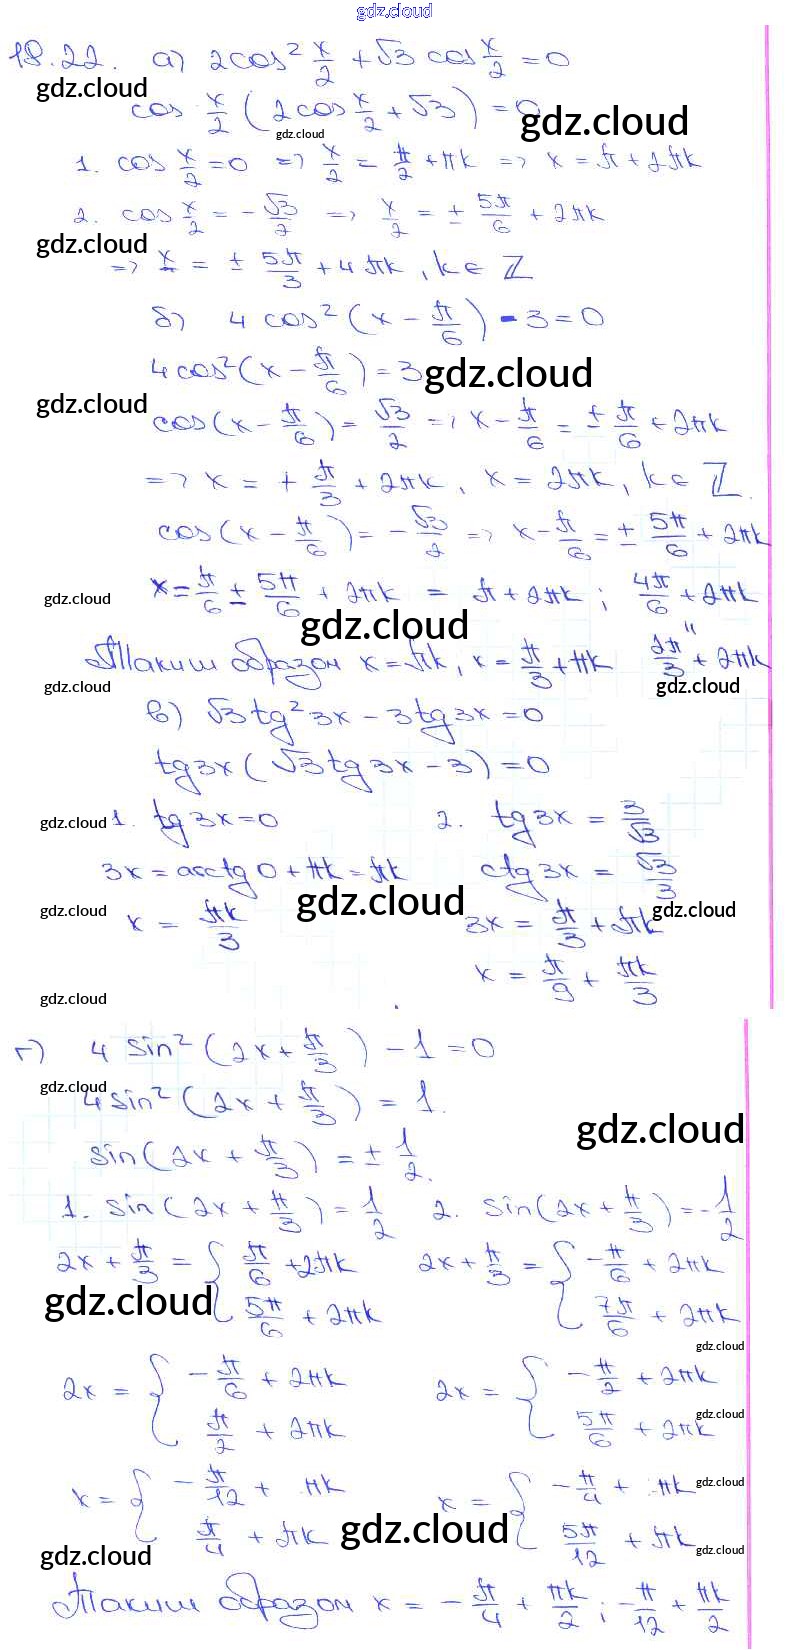 gdz.cloud
18.22. а) 2cos² x/2 + √3 cos x/2 = 0
gdz.cloud
cos x/2 (2cos x/2 + √3) = 0
gdz.cloud
gdz.cloud
1. cos x/2 = 0 => x/2 = π/2 + πk => x = π + 2πk
2. cos x/2 = -√3/2 => x/2 = ± 5π/6 + 2πk
gdz.cloud
=> x = ± 5π/3 + 4πk, k ∈ Z
б) 4 cos² (x - π/6) - 3 = 0
4cos² (x - π/6) = 3
gdz.cloud
gdz.cloud
cos(x - π/6) = √3/2 => x - π/6 = ± π/6 + 2πk
=> x = + π/3 + 2πk, x = 2πk, k ∈ Z.
cos(x - π/6) = - √3/2 => x - π/6 = ± 5π/6 + 2πk
gdz.cloud
x = π/6 ± 5π/6 + 2πk = π + 2πk; 4π/6 + 2πk
gdz.cloud
"
Таким образом x = πk, x = π/3 + πk 2π/3 + 2πk
gdz.cloud
gdz.cloud
в) √3 tg² 3x - 3tg 3x = 0
tg 3x (√3 tg 3x - 3) = 0
gdz.cloud
1. tg 3x = 0 2. tg 3x = 3/√3
3x = arctg 0 + πk = πk ctg 3x = √3/3
gdz.cloud
gdz.cloud
gdz.cloud
x = πk/3 3x = π/3 + πk
x = π/9 + πk/3
gdz.cloud
г) 4 sin² (2x + π/3) - 1 = 0
gdz.cloud
4sin² (2x + π/3) = 1.
gdz.cloud
sin(2x + π/3) = ± 1/2.
1. sin(2x + π/3) = 1/2 2. sin(2x + π/3) = -1/2
2x + π/3 = { π/6 + 2πk 2x + π/3 = { -π/6 + 2πk
gdz.cloud
5π/6 + 2πk 7π/6 + 2πk
gdz.cloud
2x = { -π/6 + 2πk 2x = { -π/2 + 2πk
π/2 + 2πk 5π/6 + 2πk
gdz.cloud
x = { -π/12 + πk x = { -π/4 + πk
gdz.cloud
π/4 + πk 5π/12 + πk
gdz.cloud
gdz.cloud
gdz.cloud
Таким образом x = - π/4 + πk/2; -π/12 + πk/2